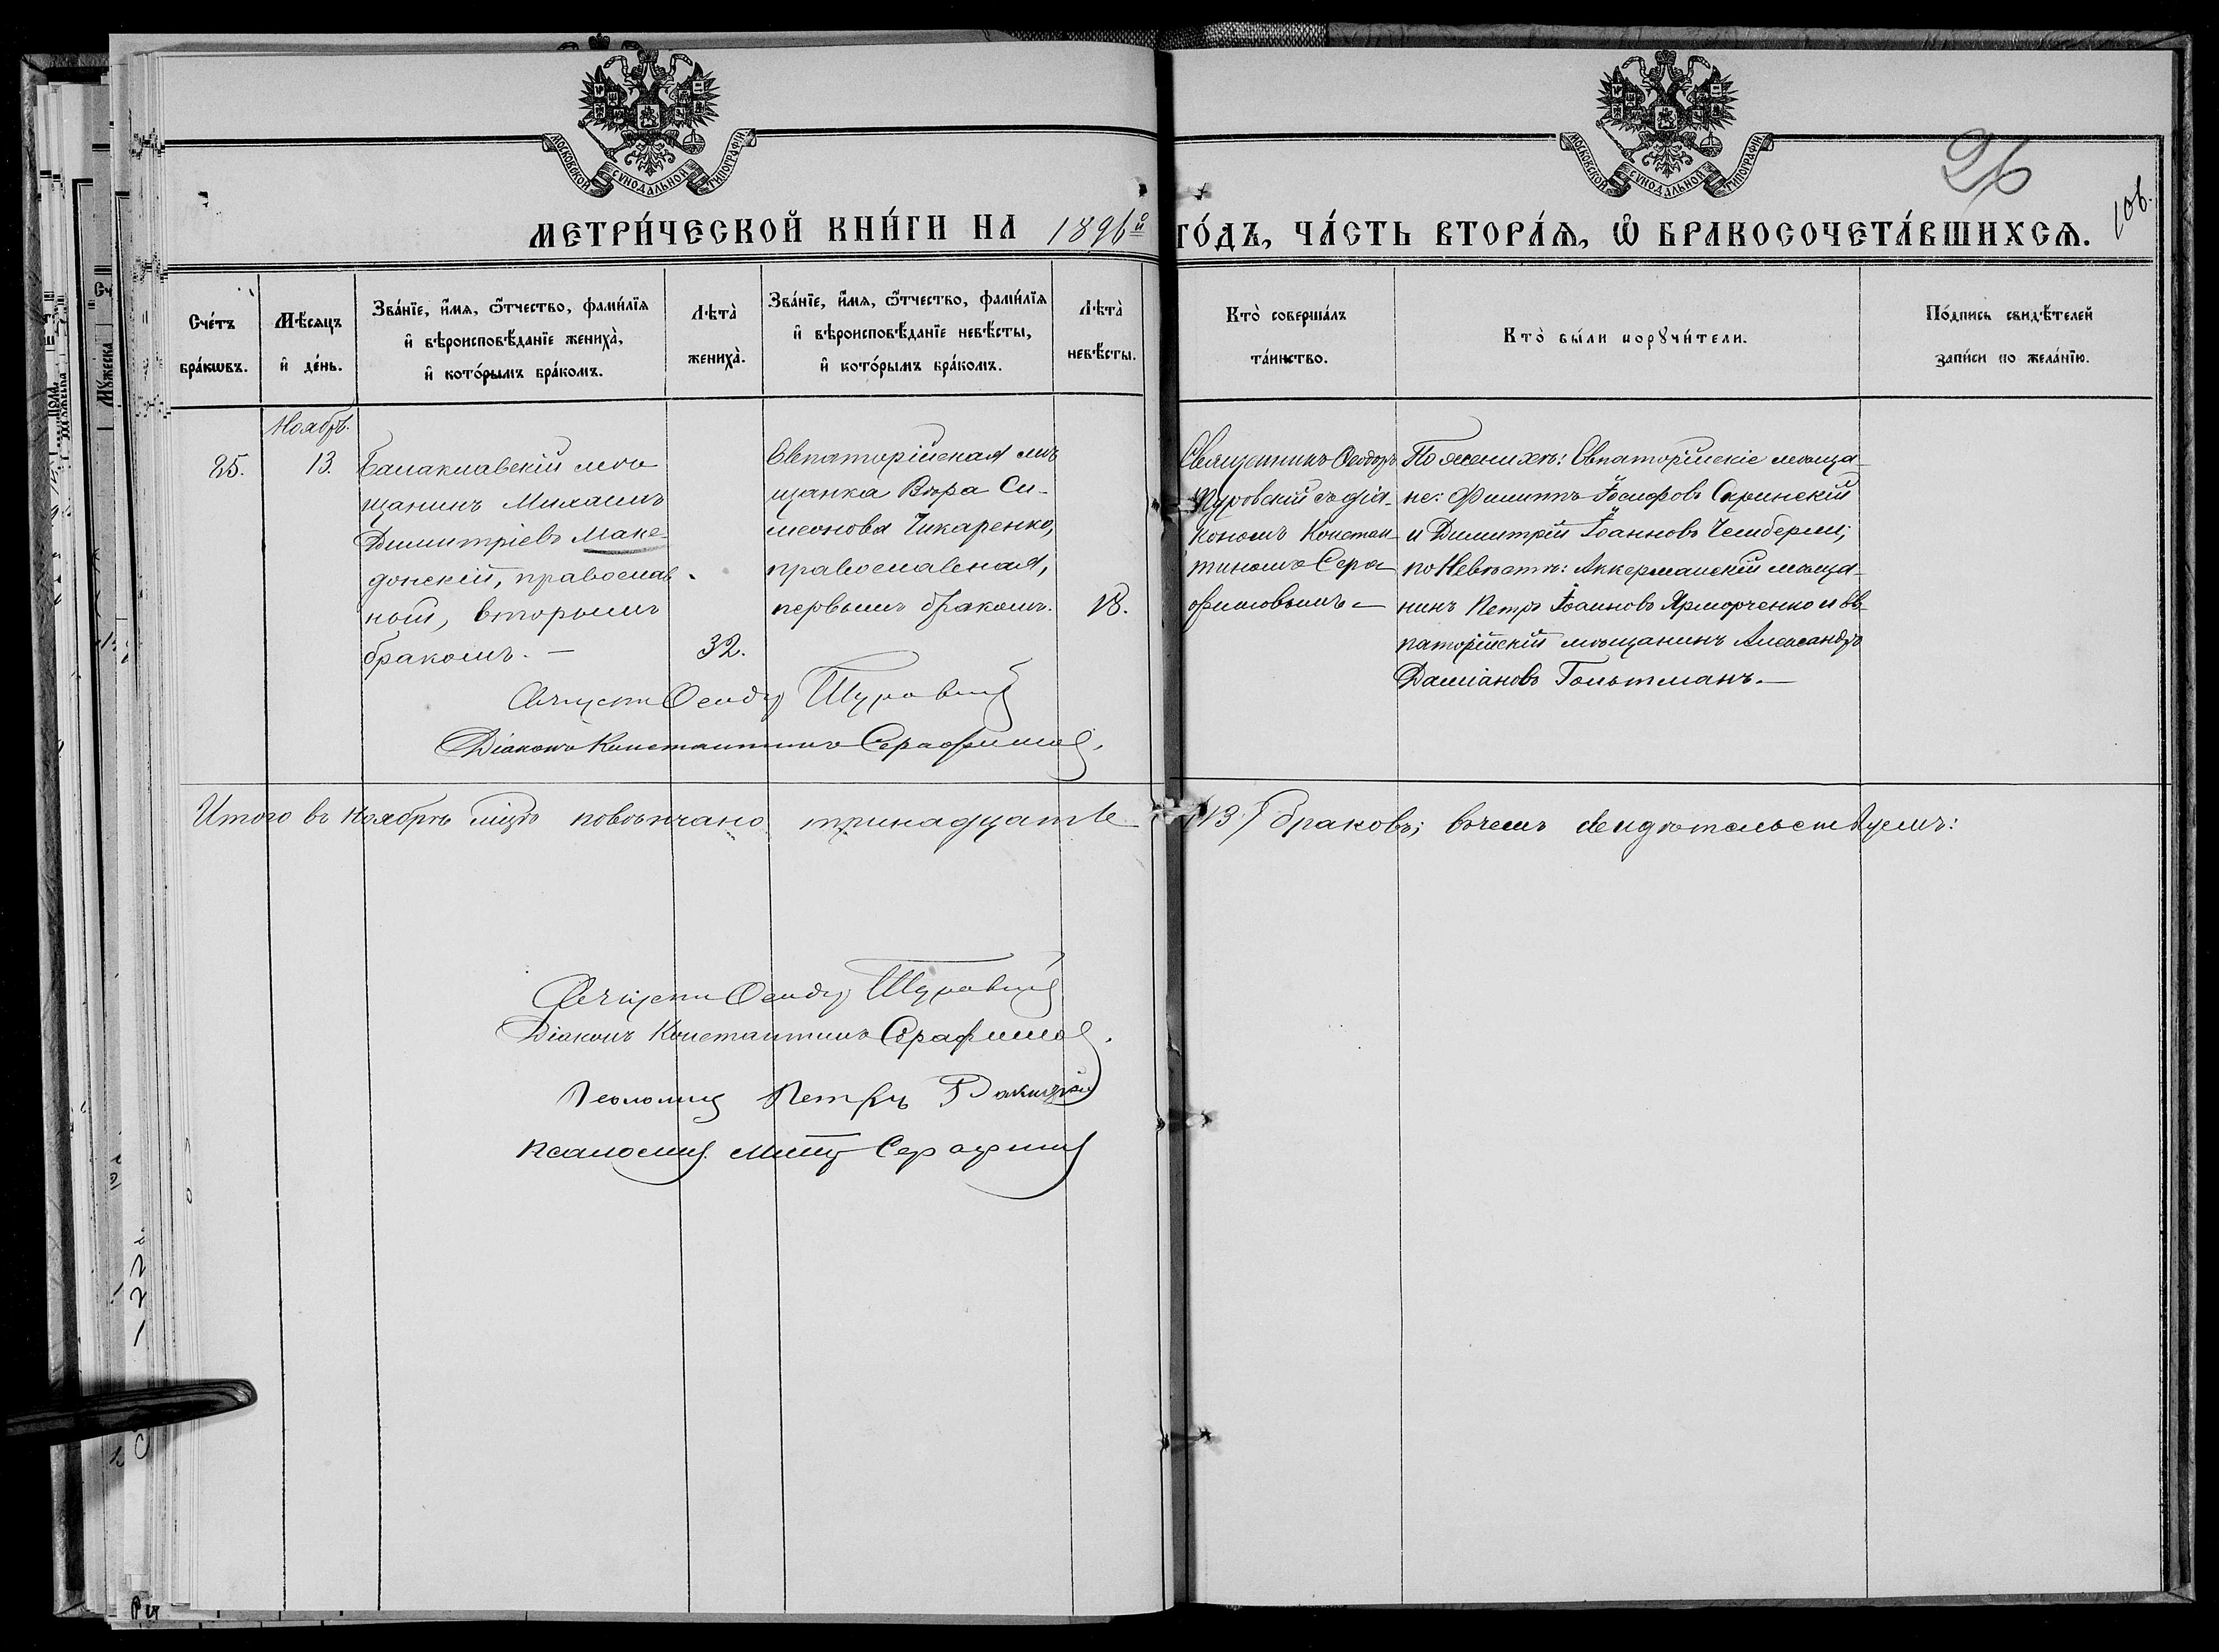 МОСКОВСКОЙ СУНОДАЛЬНОЙ ТИПОГРАФІИ
МОСКОВСКОЙ СУНОДАЛЬНОЙ ТИПОГРАФІИ
26
106.
МЕТРИ́ЧЕСКОЙ КНИ́ГИ НА 1896й ГО́ДЪ, ЧА́СТЬ ВТОРА́Ѧ, Ѿ БРАКОСОЧЕТА́ВШИХСѦ.
Сче́тъ
бра́кѡвъ.
Мѣ́сѧцъ
и҆ де́нь.
Зва́нїе, и҆́мѧ, ѻ҆́тчество, фами́лїѧ
и҆ вѣроисповѣ́данїе жениха̀,
и҆ кото́рымъ бра́комъ.
Лѣта̀
жениха̀.
Зва́нїе, и҆́мѧ, ѻ҆́тчество, фами́лїѧ
и҆ вѣроисповѣ́данїе невѣ́сты,
и҆ кото́рымъ бра́комъ.
Лѣта̀
невѣ́сты.
Кто̀ соверша́лъ
та́инство.
Кто̀ бы́ли порꙋчи́тели.
По́дпись свидѣ́телей
за́писи по жела́нїю.
Ноябрь.
25.
13.
Балаклавскій мѣ-
щанинъ Михаилъ
Димитріевъ Маке-
донскій, православ-
ный, вторымъ
бракомъ. —
32.
Евпаторійская мѣ-
щанка Вѣра Си-
меонова Чикаренко,
православная,
первымъ бракомъ.
18.
Священникъ Ѳеодоръ
Туровскій съ діа-
кономъ Констан-
тиномъ Сера-
фимовымъ —
По женихѣ: Евпаторійскіе мѣща-
не: Филиппъ Іосифовъ Скринскій
и Димитрій Іоанновъ Чемберджи;
по Невѣстѣ: Аккерманскій мѣща-
нинъ Петръ Іоанновъ Ярморченко и Ев-
паторійскій мѣщанинъ Александръ
Даміановъ Гольтманъ. —
Священ Ѳеодор Туровскій
Діаконъ Константинъ Серафимов.
Итого въ Ноябрѣ мцѣ повѣнчано тринадцать /13/ браковъ; въ чемъ свидѣтельствуемъ:
Священ Ѳеодор Туровскій
Діаконъ Константинъ Серафимов.
Псаломщ Петръ
Псаломщ. Серафим